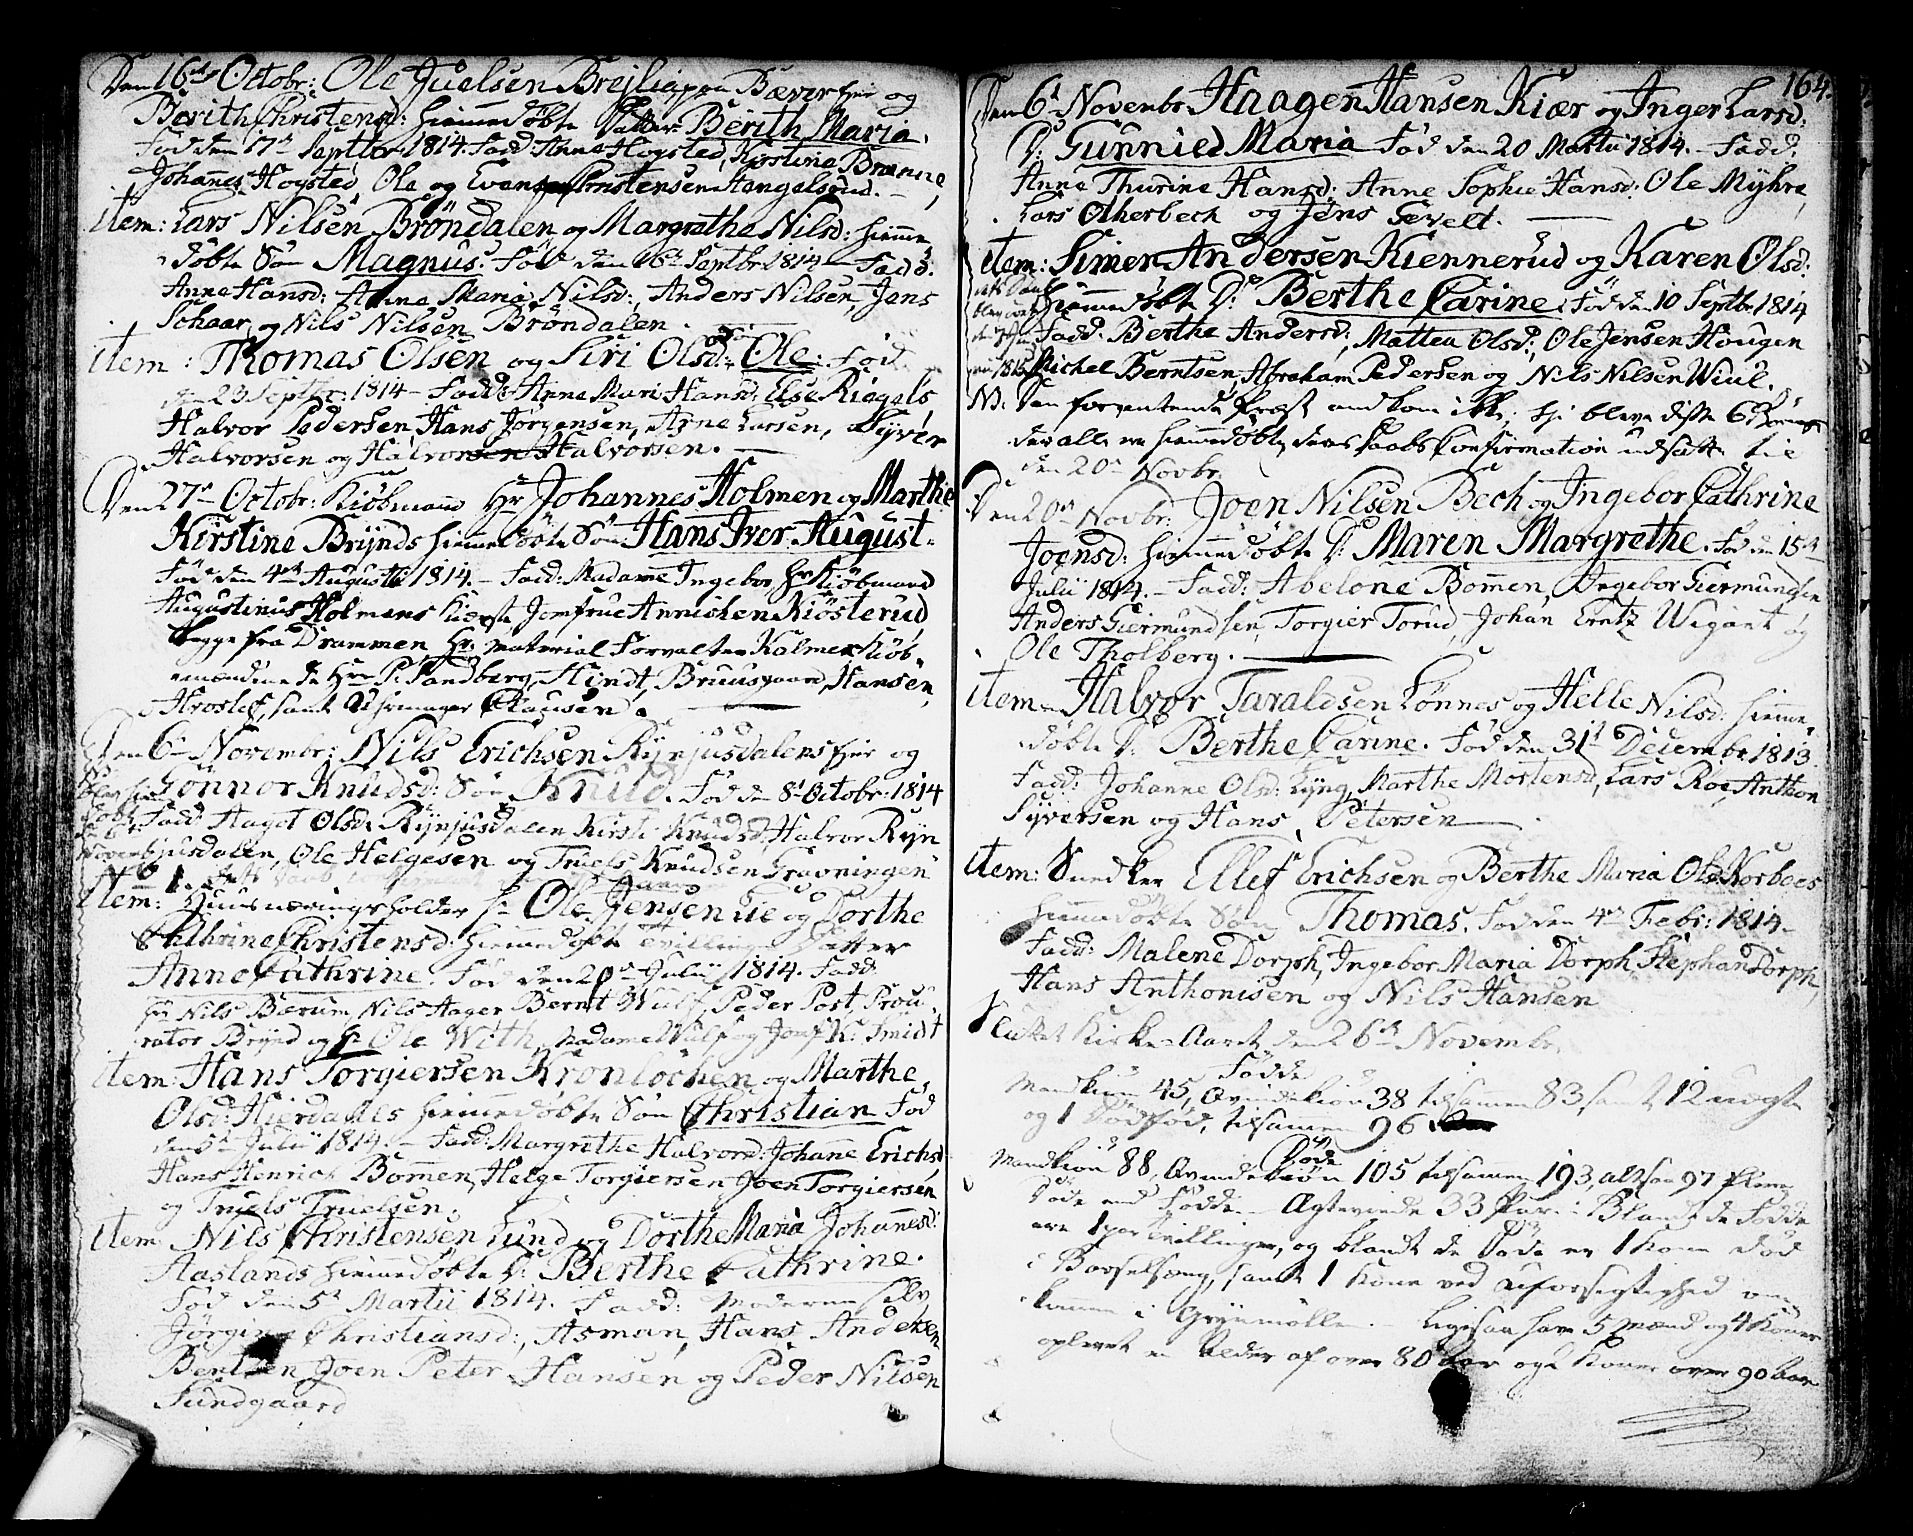 Den 16de Octobr: Ole Juelsen Brejliapaa Bæver her og
Berith Christensd: hiemmedøbte Datter Berith Maria.
Fød den 17de Septbr 1814. Fadd: Anne Hogsted, Kirstine Brænne,
Johannes Hogsted, Ole og Even Christensen Stengelsrud.
item: Lars Nilsen Brøndalen og Margrethe Nilsd: hiemme
døbte Søn Magnus. Fød den 16de Septbr 1814 Fadd:
Anne Hansd: Anne Maria Nilsd: Anders Nilsen, Jens
Schaar og Nils Nilsen Brøndalen.
item: Thomas Olsen og Siri Olsd: Søn Ole. Fød
den 23 Septbr: 1814 – Fadd: Anne Mari Hansd: Else Riøgels
Halvor Pedersen, Hans Jørgensen, Arne Larsen, Syver
Halvorsen og Halvor Halvorsen.
Den 27de Octobr: Kiøbmand Hr Johannes Holmen og Marthe
Kirstine Brynds hiemmedøbte Søn Hans Iver August.
Fød den 4de Augusti 1814. – Fadd: Madame Ingebor, Hr Kiøbmand
Augustinus Holmens Kiereste Jomfrue Annichen Kiøsterud
begge fra Drammen, Hr: Material Forvalter Kolmer Kiøb
mændene de Hrr P: Sandberg, Hindt, Bruusgaard, Hansen,
Hrostef, samt Uhrmager Clausen.
Den 6te Novembr: Nils Erichsen Rynjusdalens her og
Gonnor Knudsd: Søn Knud. Fød den 8de Octobr: 1814
Fadd: Aagot Olsd: Rynjusdalen Kirsti Knudsd, Halvor Ryn
jusdalen, Ole Helgesen og Truels Knudsen Gravningen
item: Huusnæringsholder Hr Ole Jensen Lie og Dorthe
Cathrine Christensd: hiemmedøbte Tvilling Datter
Anne Cathrine. Fød den 20de Julii 1814. Fadd:
Hr Nils Bærum, Nils Hager Bernt Wulf, Peder Post, Procu
rator Brynd og Hr Ole With, Madame Wulf og Jomf: K: Smidt
item: Hans Torgiersen Kronløchen og Marthe
Olsd: Hierdahls hiemmedøbte Søn Christian Fød
den 5te Julii 1814. – Fadd: Margrethe Halvorsd: Johanne Erichsd
Hans Henrich Bommen, Helge Torgiersen Joen Torgiersen
og Truels Truelsen.
item Nils Christensen Lund og Dorthe Maria Johannesd:
Aaslands hiemmedøbte D: Berthe Cathrine.
Fød den 5te Martii 1814. Fadd: Moderen selv
Jørgine Christiansd:, Asman, Hans Andersen
Bentzen Joen Peter Hansen og Peder Nilsen
Sundgaard
164.
Den 6te Novembr Haagen Hansen Kiær og Inger Larsd:
D: Gunnied Maria Fød den 20 Martii 1814. – Fadd:
Anne Thurine Hansd: Anne Sophie Hansd: Ole Myhre,
Lars Otherbech og Jens Gevelt.
item: Simen Andersen Kiennerud og Karen Olsd:
hiemmedøbte D: Berthe Carine. Fød den 10 Septbr 1814
Fadd: Berthe Andersd:, Mattea Olsd:, Ole Jensen Hougen
Michel Berntsen, Abraham Pedersen og Nils Nilsen Wiul.
NB. Den forventende Præst ankom ikke, thi bleve disse 6 Børn
der alle ere hiemmedøbte, deres Daabs Confirmation udsatte til
den 20de Novbr.
Den 20de Novbr: Joen Nilsen Bech og Ingebor Cathrine
Joensd: hiemmedøbte D: Maren Margrethe. Fød den 15de
Julii 1814. – Fadd: Abelone Bommen, Ingebor Giermundsen
Anders Giermundsen, Torgier Torud, Johan Erntz Wigant og
Ole Tholberg.
item – Halvor Taraldsen Lønnes og Helle Nilsd: hiemme
døbte D: Berthe Carine. Fød den 31te Decembr 1813.
Fadd: Johanne Olsd: Lyng, Marthe Mortensd, Lars Roe, Anthon
Syversen og Hans Petersen
item: Snedker Ellef Erichsen og Berthe Maria Olsd: Korboes
hiemmedøbte Søn Thomas. Fød den 4de Febr: 1814.
Fadd: Malene Dorph, Ingebor Maria Dorph, Stephan Dorph,
Hans Anthonisen og Nils Hansen
Sluttet Kirke-Aaret den 26de Novembr.
Fødde
Mandkiøn 45, Qvindekiøn 38 tilsamen 83, samt 12 uægte
og 1 Dødfød, tilsamen 96
Døde
Mandkiøn 88, Qvindekiøn 105 tilsamen 193, altsaa 97 flere
Døde end Fødde. – Ægteviede 33 Par. – Blandt de Fødde
ere 1 par tvillinger, og blandt de Døde er 1 Kone død
i Barselsæng, samt 1 Kone ved uforsigtighed om
kommen i Grynmølle. – Ligesaa have 5 Mænd og 4 Koner
oplevet en Alder af over 80 Aar og 2 Koner over 90 Aar